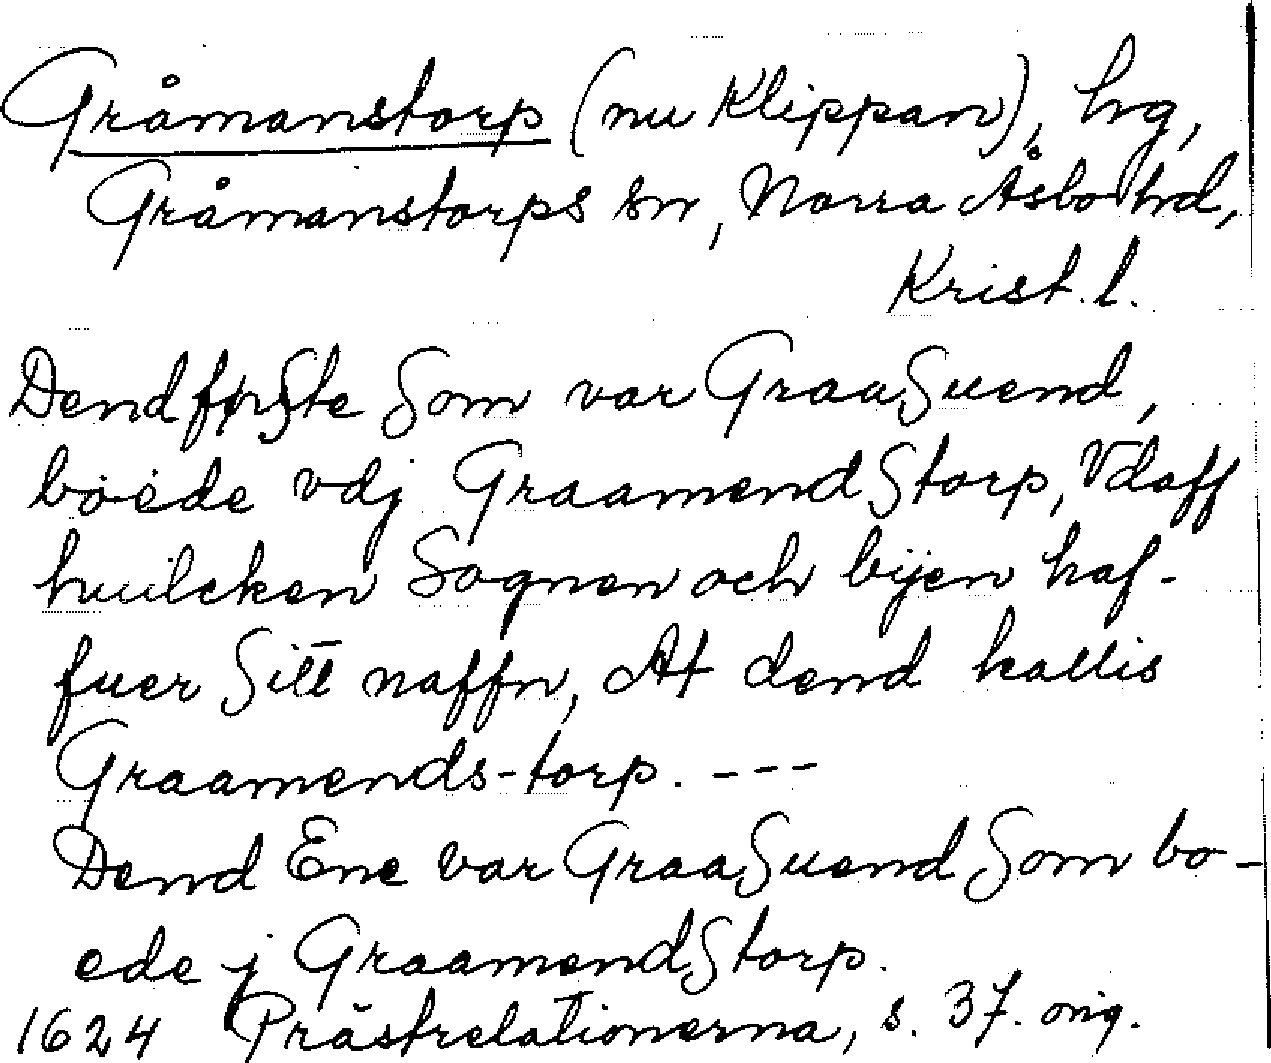 Gråmanstorp (nu Klippan), hg,
Gråmanstorps sn, Norra Åsbo hd,
Krist. l.
Dend første Som var Graa Suend,
boede vdj Graamend Storp, Vdaff
huilcken Sognen och bijen haf-
fuer Sitt naffn, At dend kallis
Graamends-torp. ---
Dend Ene var Graa Suend Som bo-
ede j Graamend Storp.
1624 Prästrelationerna, s. 37. orig.